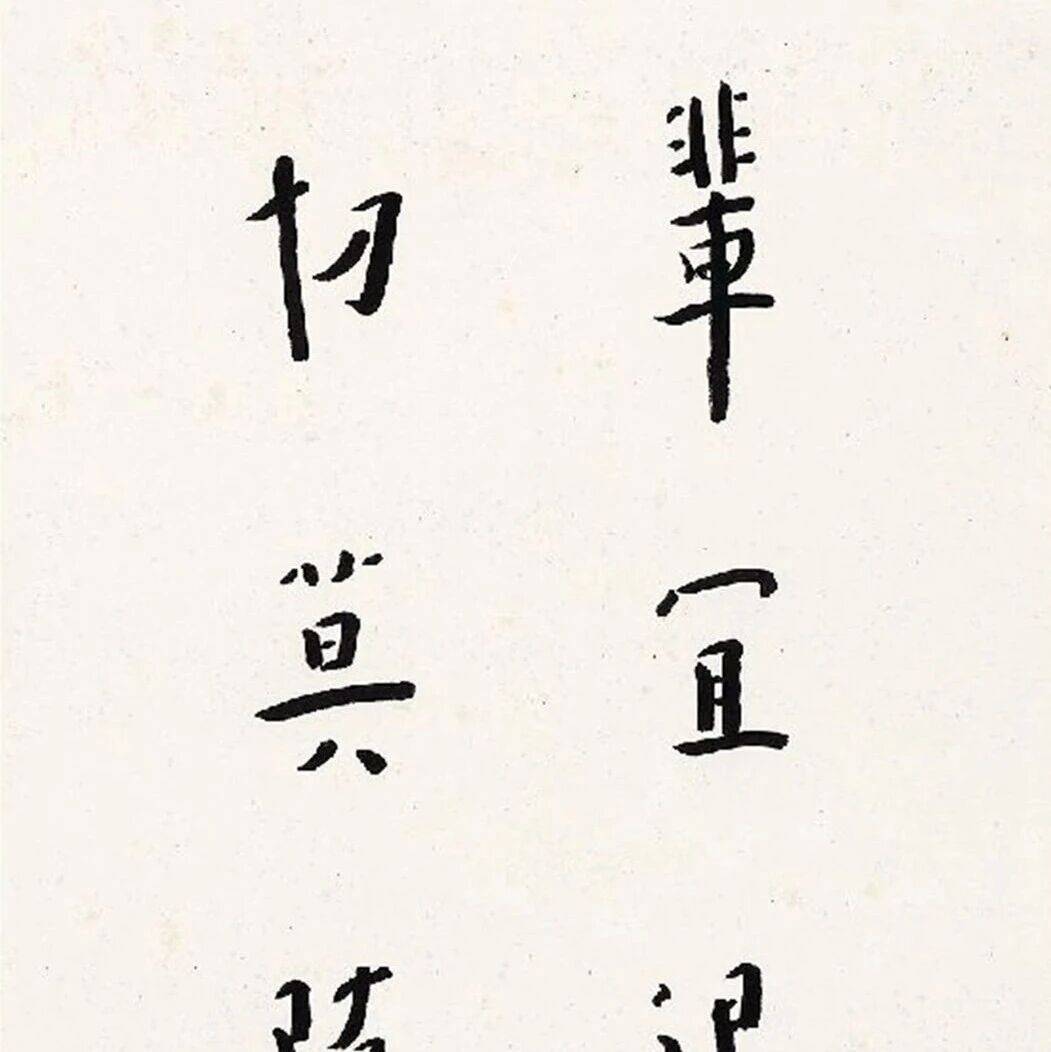 輩宜
切莫